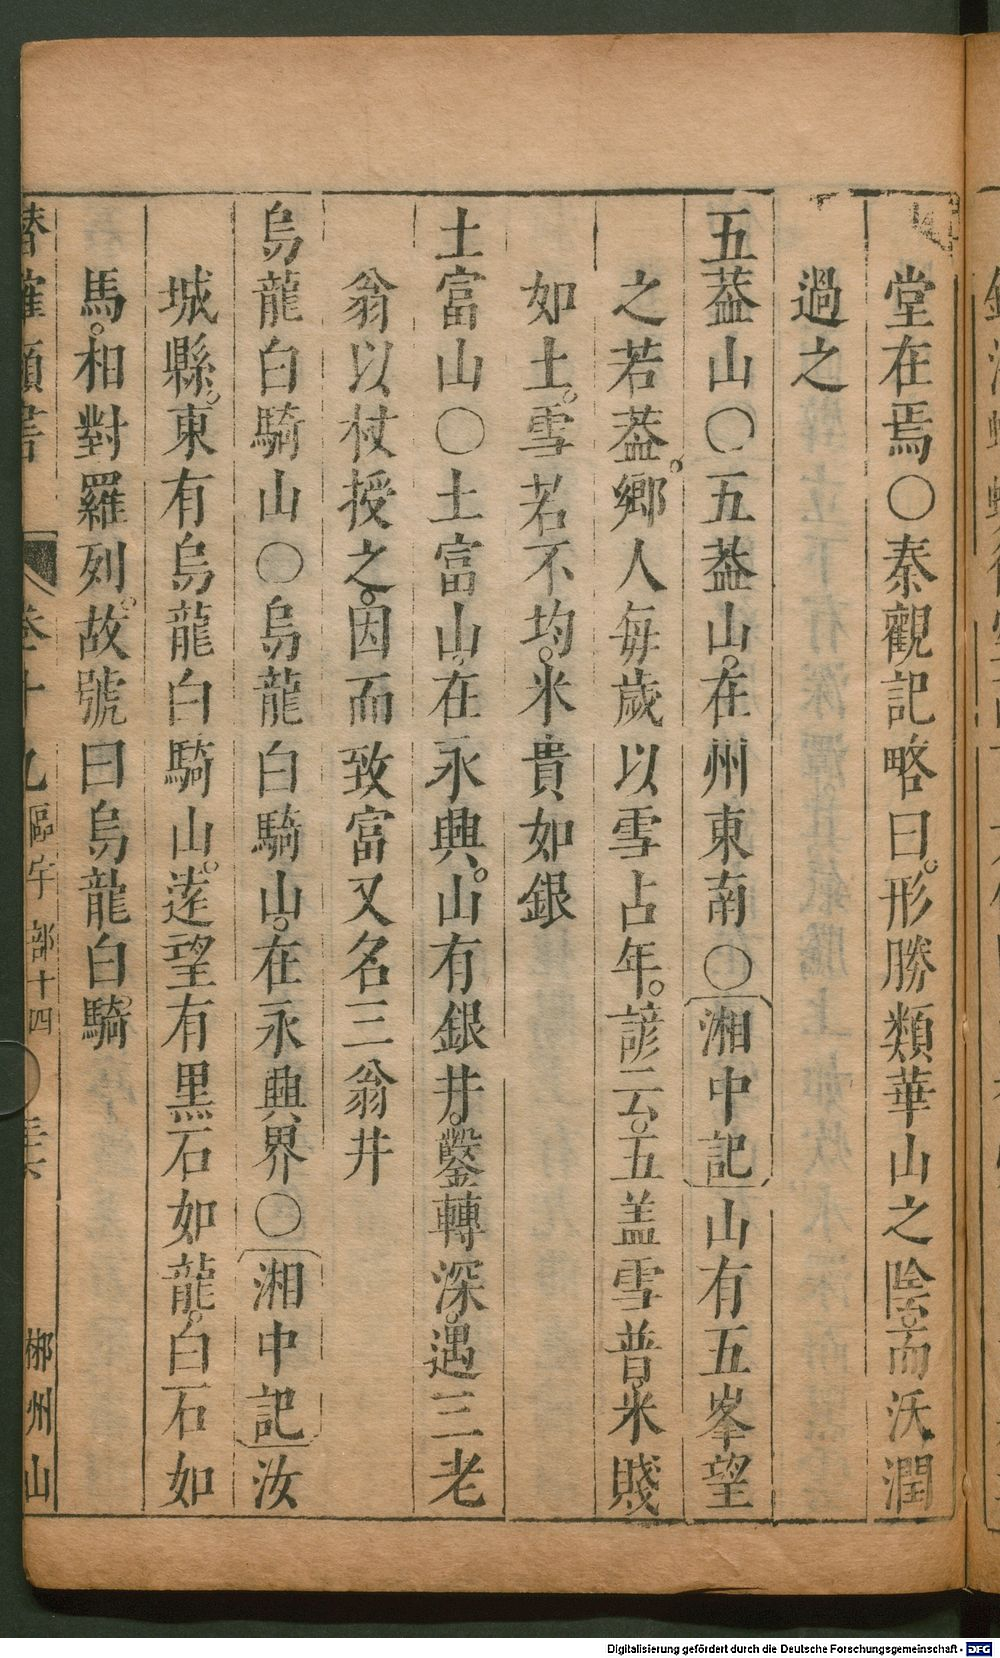 堂在焉〇秦觀記略曰。形勝類華山之陰。而沃潤
過之
五葢山〇五葢山。在州東南〇湘中記山有五峯望
之若葢。鄉人每歲以雪占年。諺云。五盖雪普。米賤
如土。雪若不均。米貴如銀
土富山〇土富山。在永興。山有銀井。鑿轉深。遇三老
翁以杖授之。因而致富又名三翁井
烏龍白騎山〇烏龍白騎山。在永興界〇湘中記汝
城縣。東有烏龍白騎山。遠望有黑石如龍。白石如
馬。相對羅列。故號曰烏龍白騎
卷十九區宇部十四 郴州山
Digitalisierung gefördert durch die Deutsche Forschungsgemeinschaft - DFG